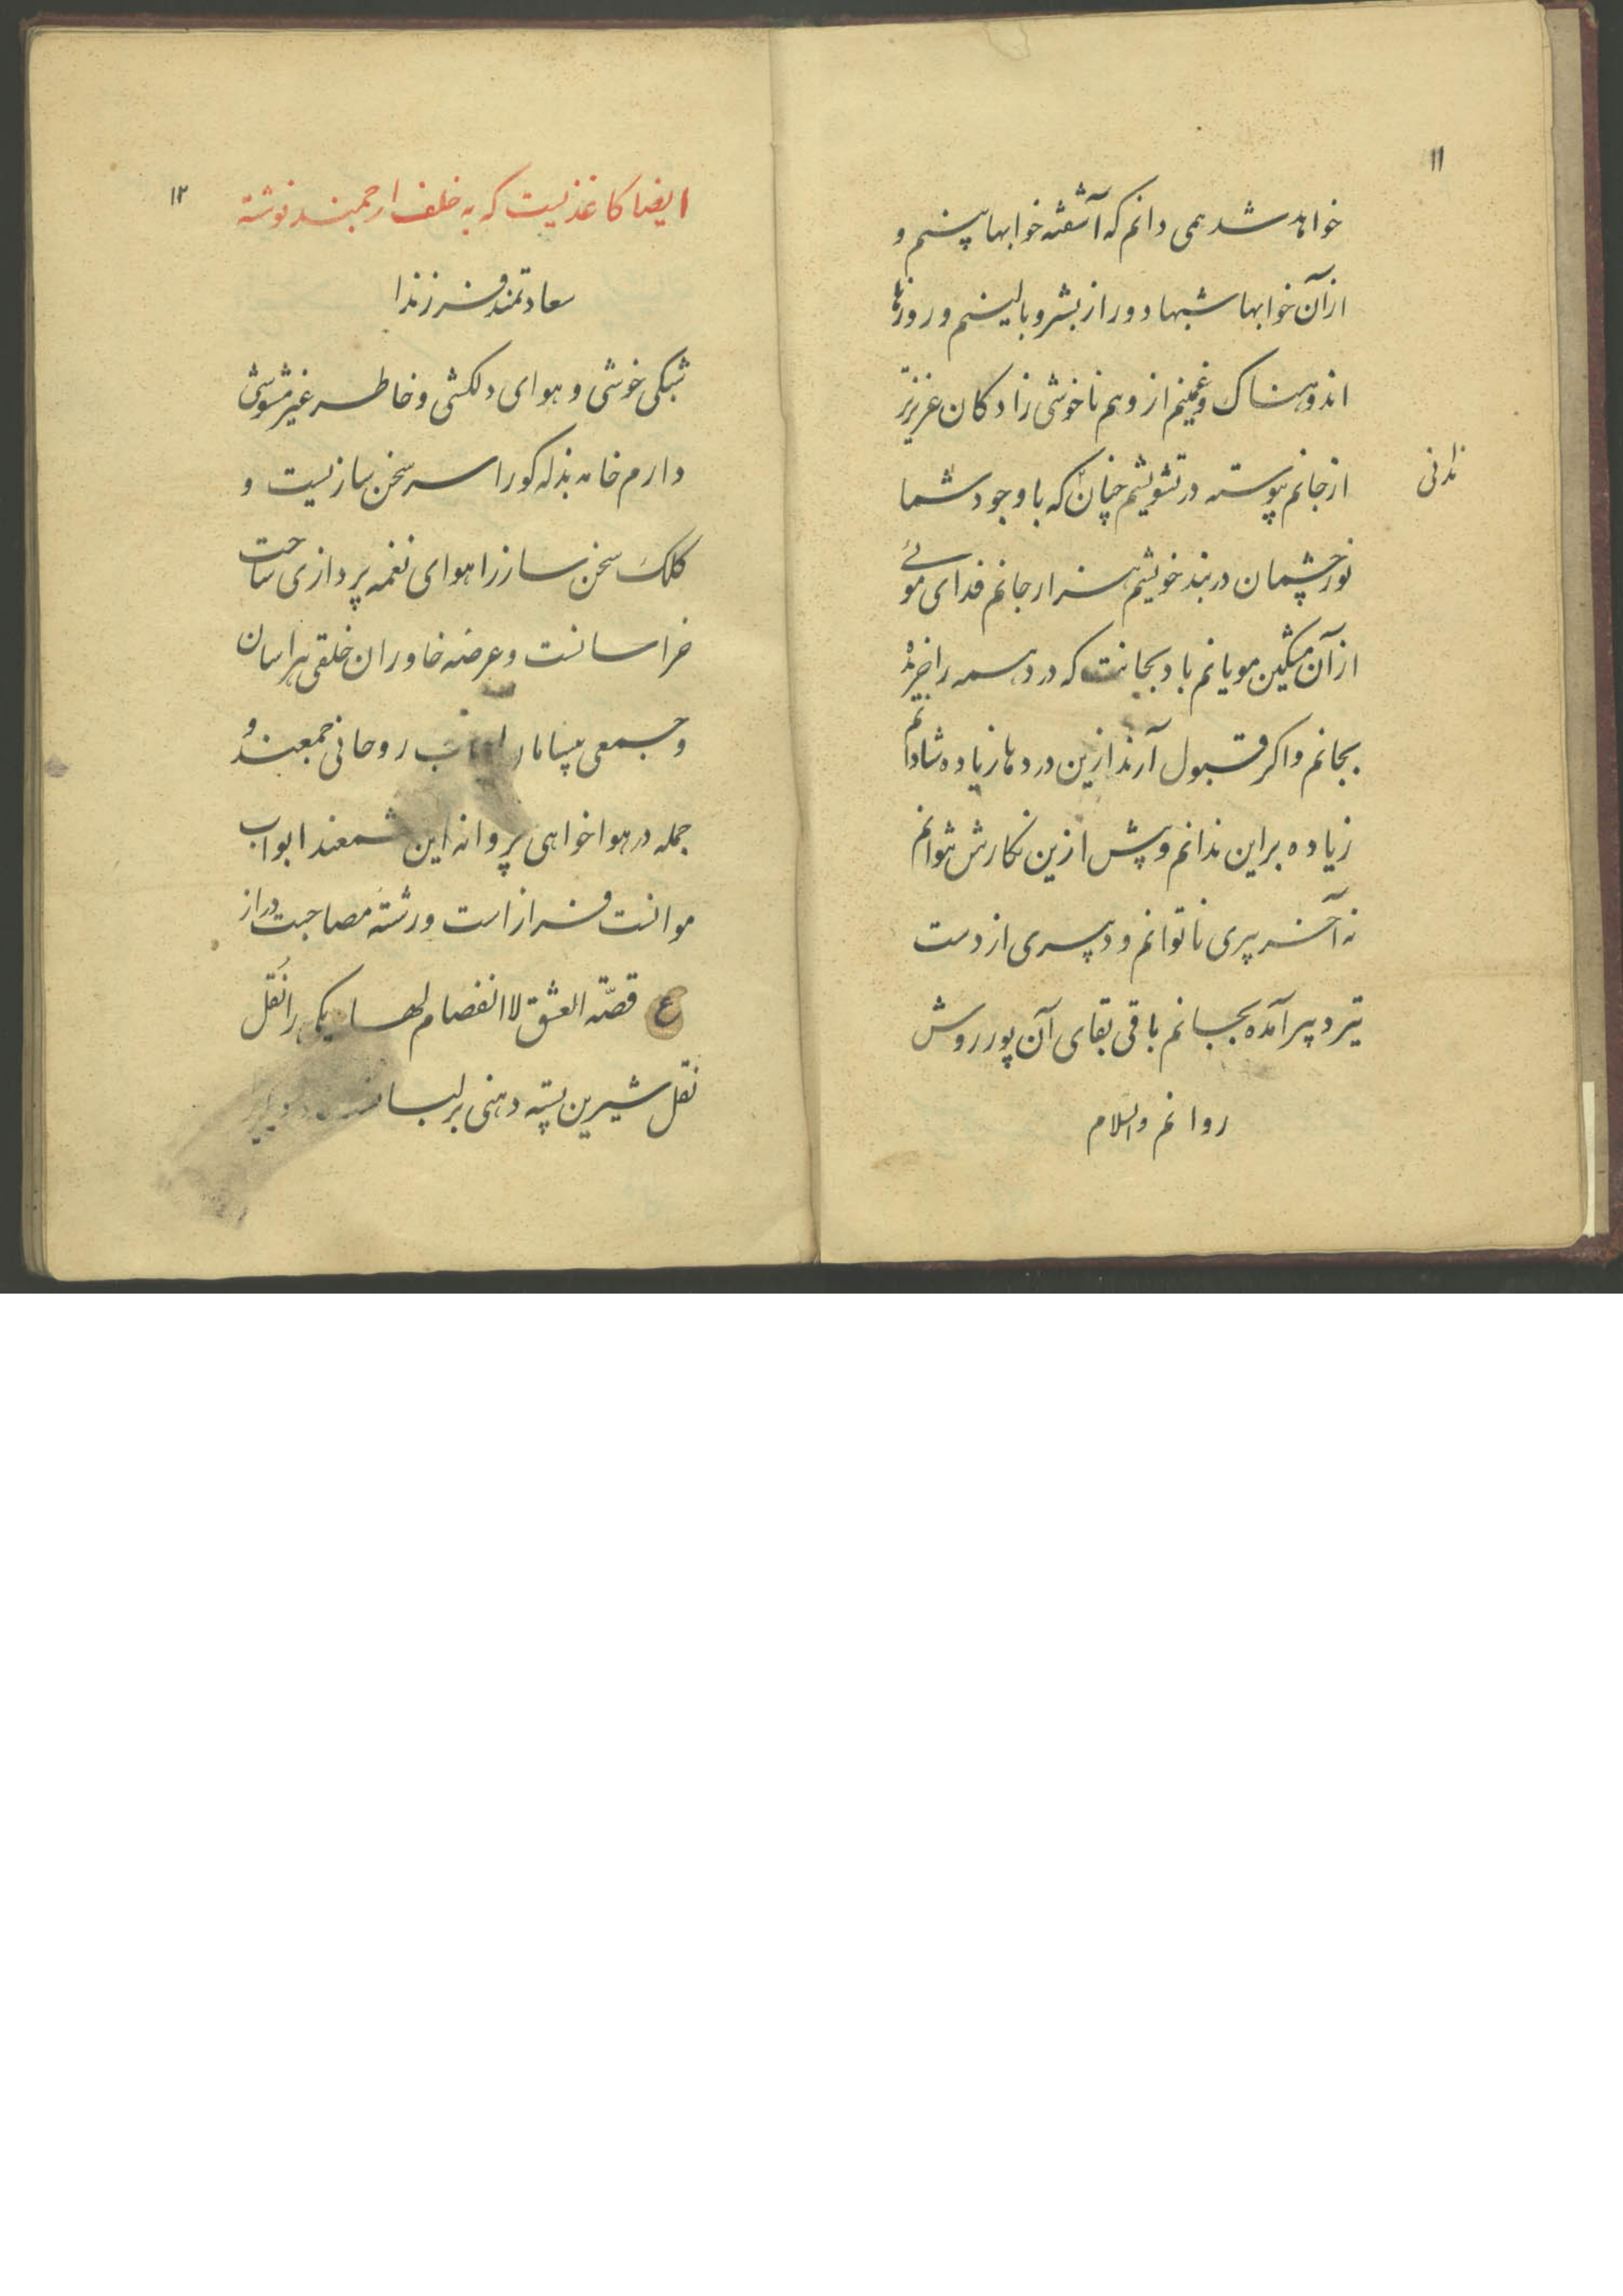 ۱۱
خواهد شد همی دانم که آشفته خوابها بینم و
از آن خوابها شبها دور از بستر و بالینم و روزها
اندوهناک و غمینم از وهم ناخوشی زادکان عزیزتر
از جانم پیوسته در تشویشم چنان که با وجود شما
ندانی
نور چشمان در بند خویشم هزار جانم فدای موئے
از آن مشکین مویانم باد بجانت که درد همه را خریده
بجانم و اکر قبول آرند ازین دردها زیاده شادانم
زیاده براین ندانم و پیش ازین نکارش نتوانم
نه آخر پیری ناتوانم و دپسری از دست
تیر د پیر آمده بجانم باقی بقای آن پور روش
روانم والسلام
۱۲
ایضا کاغذیست که به خلف ارجمند نوشته
سعادتمند فرزندا
شبکی خوشی و هوای دلکشی و خاطر غیر مشوشی
دارم خامه بذله کو را سر سخن سازیست و
کلک سخن ساز را هوای نغمه پردازی ساحت
خراسانست و عرضه خاوران خلقی هراسان
و جمعی بیسامان روحانی جمعند و
جمله در هواخواهی پروانه این شمعند ابواب
موانست فراز است و رشته مصاحبت دراز
ع قصّة العشق لا انفصام لها یکی را نُقل
نقل شیرین پسته دهنی بر لب